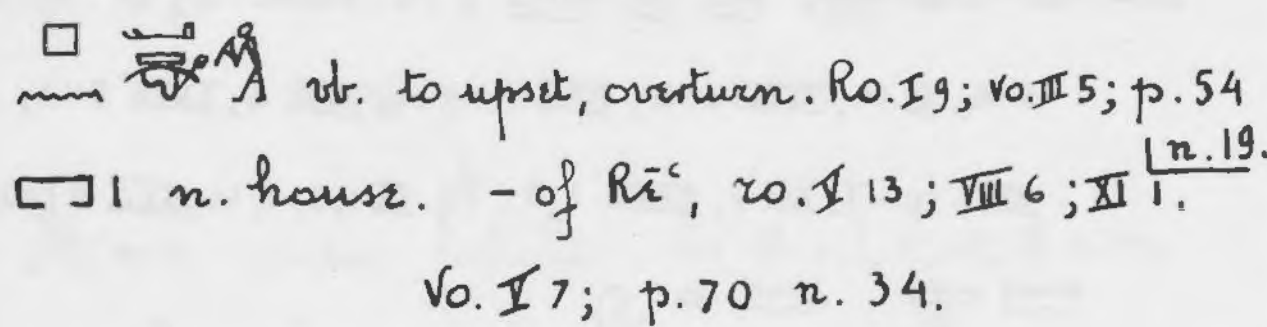 𓊪𓈖 vb. to upset, overturn. Ro. I 9; Vo. III 5; p. 54
n. 19.
𓉐𓏤 n. house. – of Rēꜥ, ro. V 13; VIII 6; XI 1.
Vo. V 7; p. 70 n. 34.